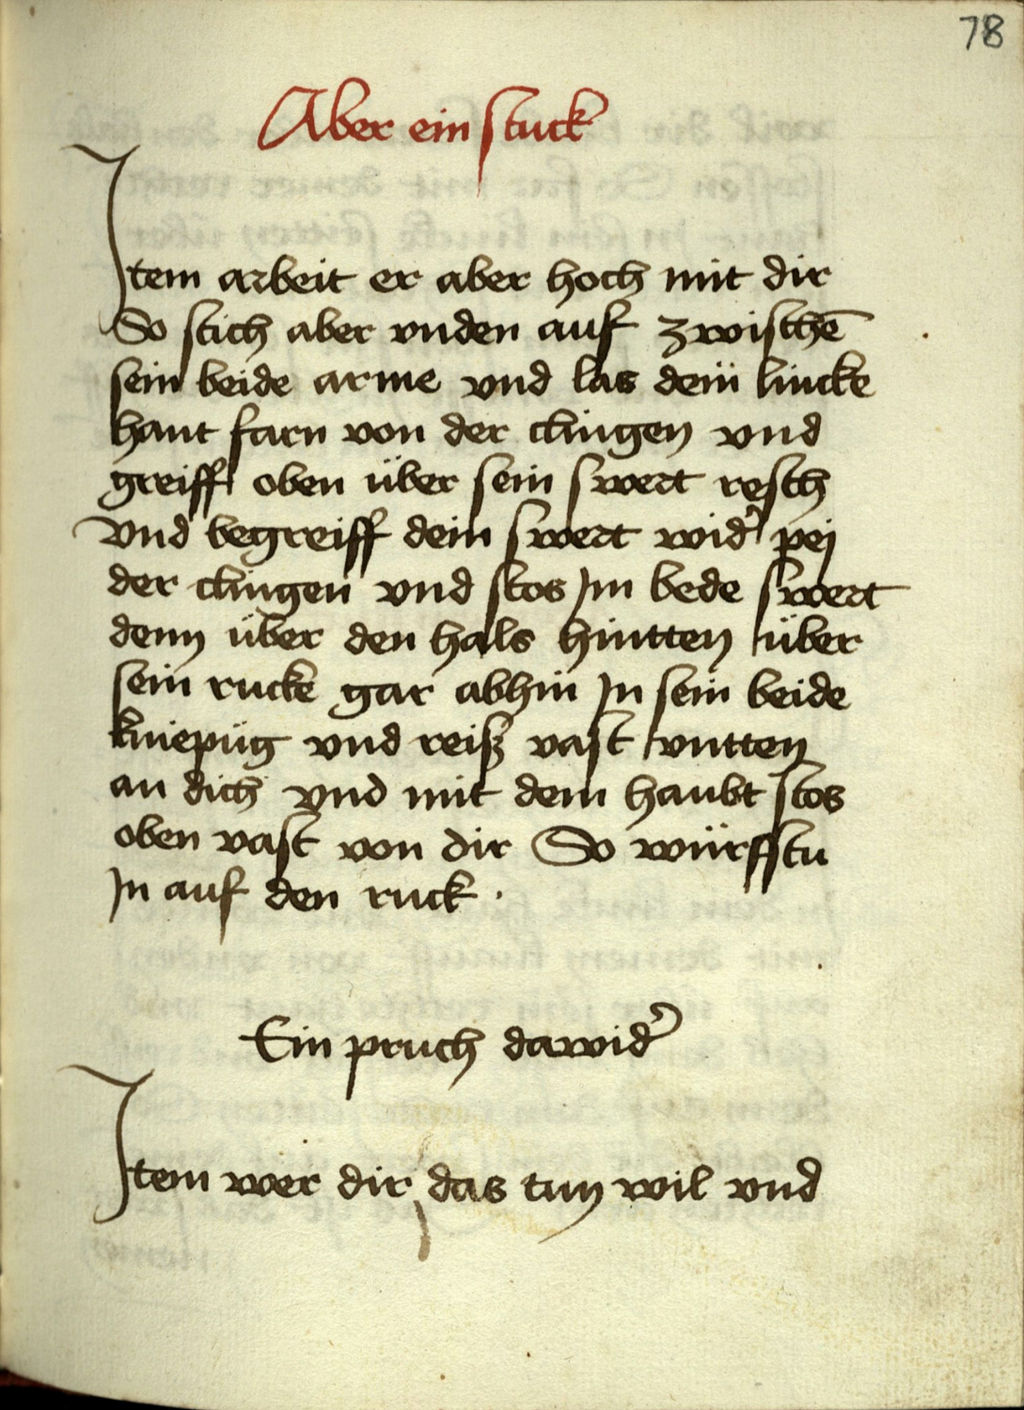 78
Aber ein stuck
Item arbeit er aber hoch mit dir
So stich aber vnden auf zwischē
sein beide arme vnd las dein lincke
hant farn von der clingen vnd
greiff oben über sein swert resch
vnd begreiff dein swert wid' pej
der clingen vnd stos Jm bede swert
denn über den hals hintten über
sein rucke gar abhin Jn sein beide
kniepüg vnd reiß vast vntten
an dich vnd mit dem haubt stos
oben vast von dir So würffstu
Jn auf den ruck ·
Ein pruch dawid'
Item wer dir das tun wil vnd